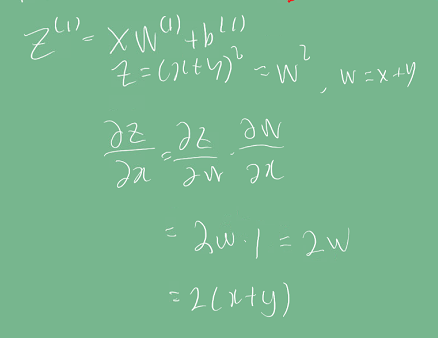 Z⁽¹⁾ = XW⁽¹⁾ + b⁽¹⁾
z = (x+y)² = w² , w = x+y
∂z/∂x = ∂z/∂w · ∂w/∂x
= 2w · 1 = 2w
= 2(x+y)